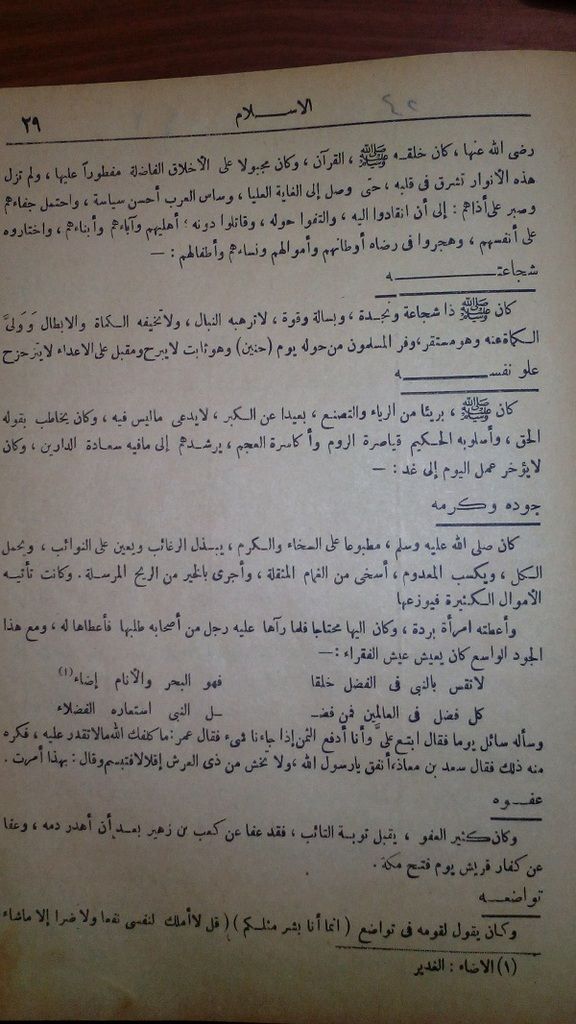 الاسلام
٢٩
رضى الله عنها ، كان خلقه ﷺ ، القرآن ، وكان مجبولا على الأخلاق الفاضلة مفطوراً عليها ، ولم تزل
هذه الأنوار تشرق فى قلبه ، حتى وصل إلى الغاية العليا ، وساس العرب أحسن سياسة ، واحتمل جفاءهم
وصبر على أذاهم : إلى أن انقادوا اليه ، والتفوا حوله ، وقاتلوا دونه ؛ أهليهم وآباءهم وأبناءهم ، واختاروه
على أنفسهم ، وهجروا فى رضاه أوطانهم وأموالهم ونساءهم وأطفالهم : —
شجاعته
كان ﷺ ذا شجاعة ونجدة ، وبسالة وقوة ، لاترهبه النبال ، ولاتخيفه الكماة والابطال وَوَلىَّ
الكماة عنه وهو مستقر ، وفر المسلمون من حوله يوم (حنين) وهو ثابت لايبرح ومقبل على الاعداء لايتزحزح
علو نفسه
كان ﷺ ، بريئا من الرياء والتصنع ، بعيدا عن الكبر ، لايدعى ماليس فيه ، وكان يخاطب بقوله
الحق ، وأسلوبه الحكيم قياصرة الروم وأكاسرة العجم ، يرشدهم إلى مافيه سعادة الدارين ، وكان
لايؤخر عمل اليوم إلى غد : —
جوده وكرمه
كان صلى الله عليه وسلم ، مطبوعا على السخاء والكرم ، يبذل الرغائب ويعين على النوائب ، ويحمل
الكل ، ويكسب المعدوم ، أسخى من الغمام المثقلة ، وأجرى بالخير من الريح المرسلة . وكانت تأتيه
الاموال الكثيرة فيوزعها
وأعطته امرأة بردة ، وكان اليها محتاجا فلما رآها عليه رجل من أصحابه طلبها فأعطاها له ، ومع هذا
الجود الواسع كان يعيش عيش الفقراء : —
لاتقس بالنبى فى الفضل خلقا فهو البحر والأنام إضاء (١)
كل فضل فى العالمين فمن فضـ ـل النبى استعاره الفضلاء
وسأله سائل يوما فقال ابتع علىَّ وأنا أدفع الثمن إذا جاءنا شىء فقال عمر: ما كلفك الله مالاتقدر عليه ، فكره
منه ذلك فقال سعد بن معاذ: أنفق يارسول الله ، ولا تخش من ذى العرش إقلالا فتبسم وقال : بهذا أمرت .
عفوه
وكان كثير العفو ، يقبل توبة التائب ، فقد عفا عن كعب بن زهير بعد أن أهدر دمه ، وعفا
عن كفار قريش يوم فتح مكة .
تواضعه
وكان يقول لقومه فى تواضع ( انما أنا بشر مثلكم ) ( قل لاأملك لنفسى نفعا ولا ضرا إلا ماشاء
(١) الاضاء : الغدير